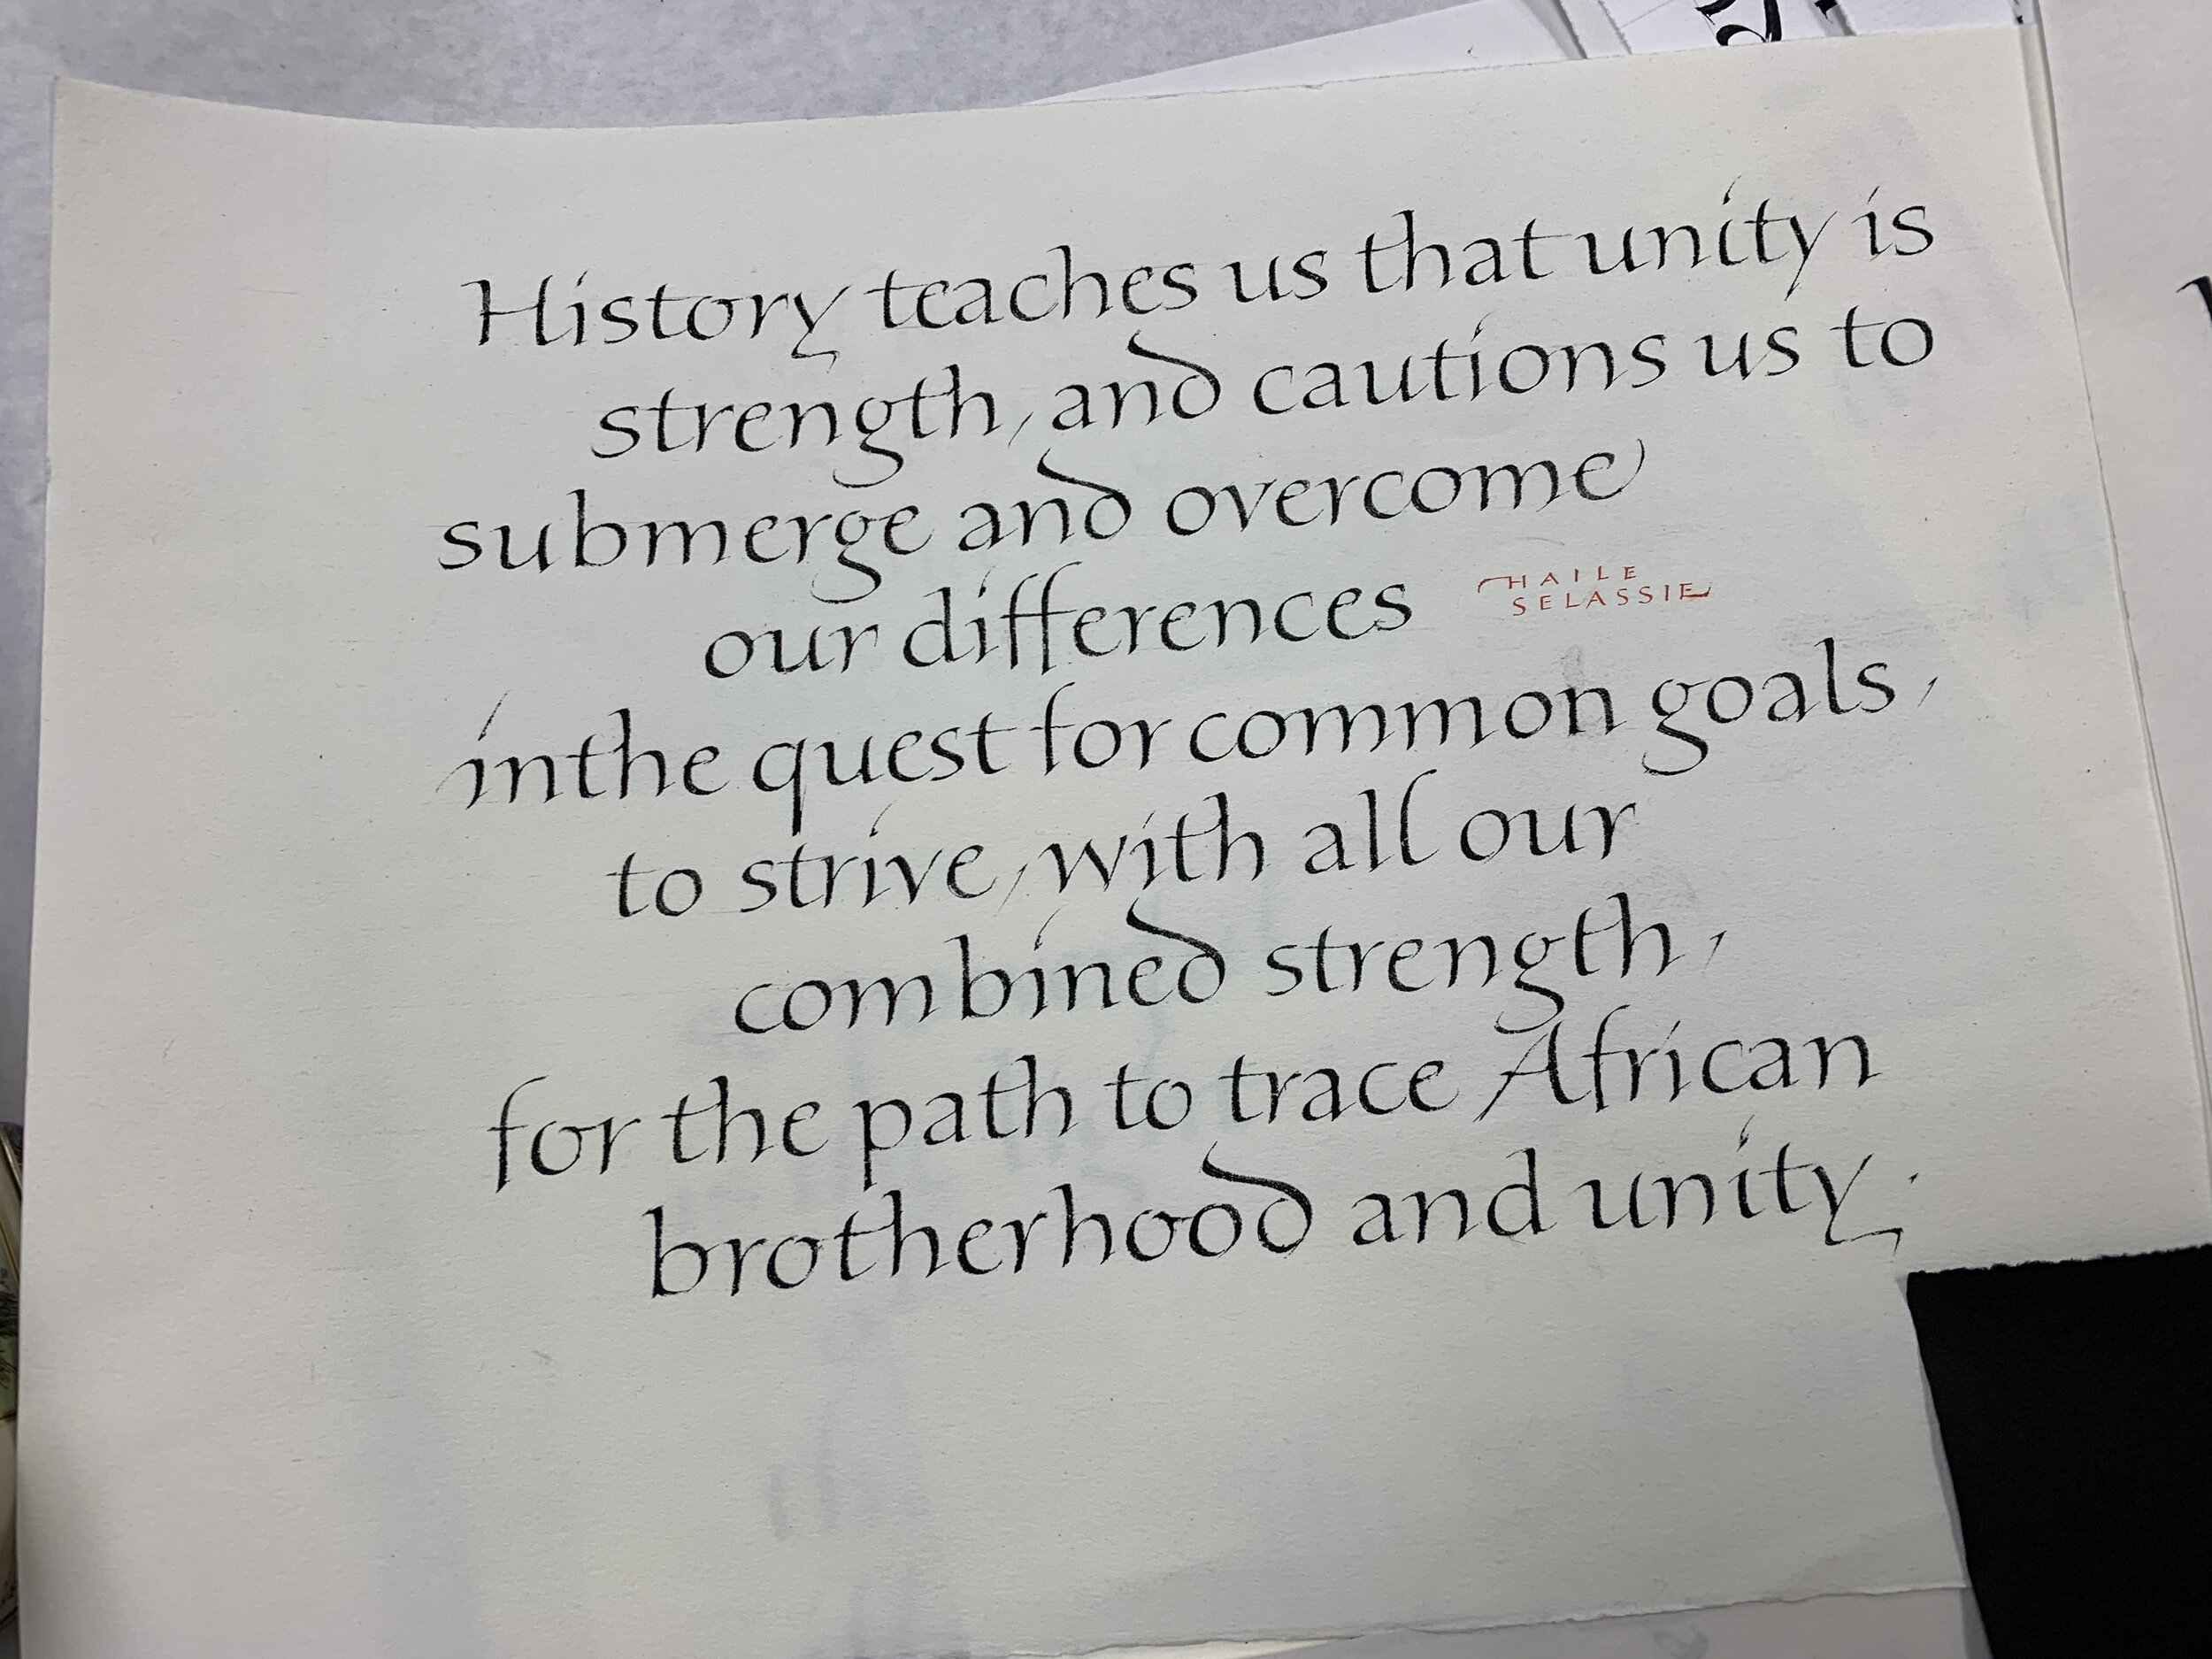 History teaches us that unity is
strength, and cautions us to
submerge and overcome
our differences
HAILE
SELASSIE
in the quest for common goals,
to strive, with all our
combined strength,
for the path to trace African
brotherhood and unity.